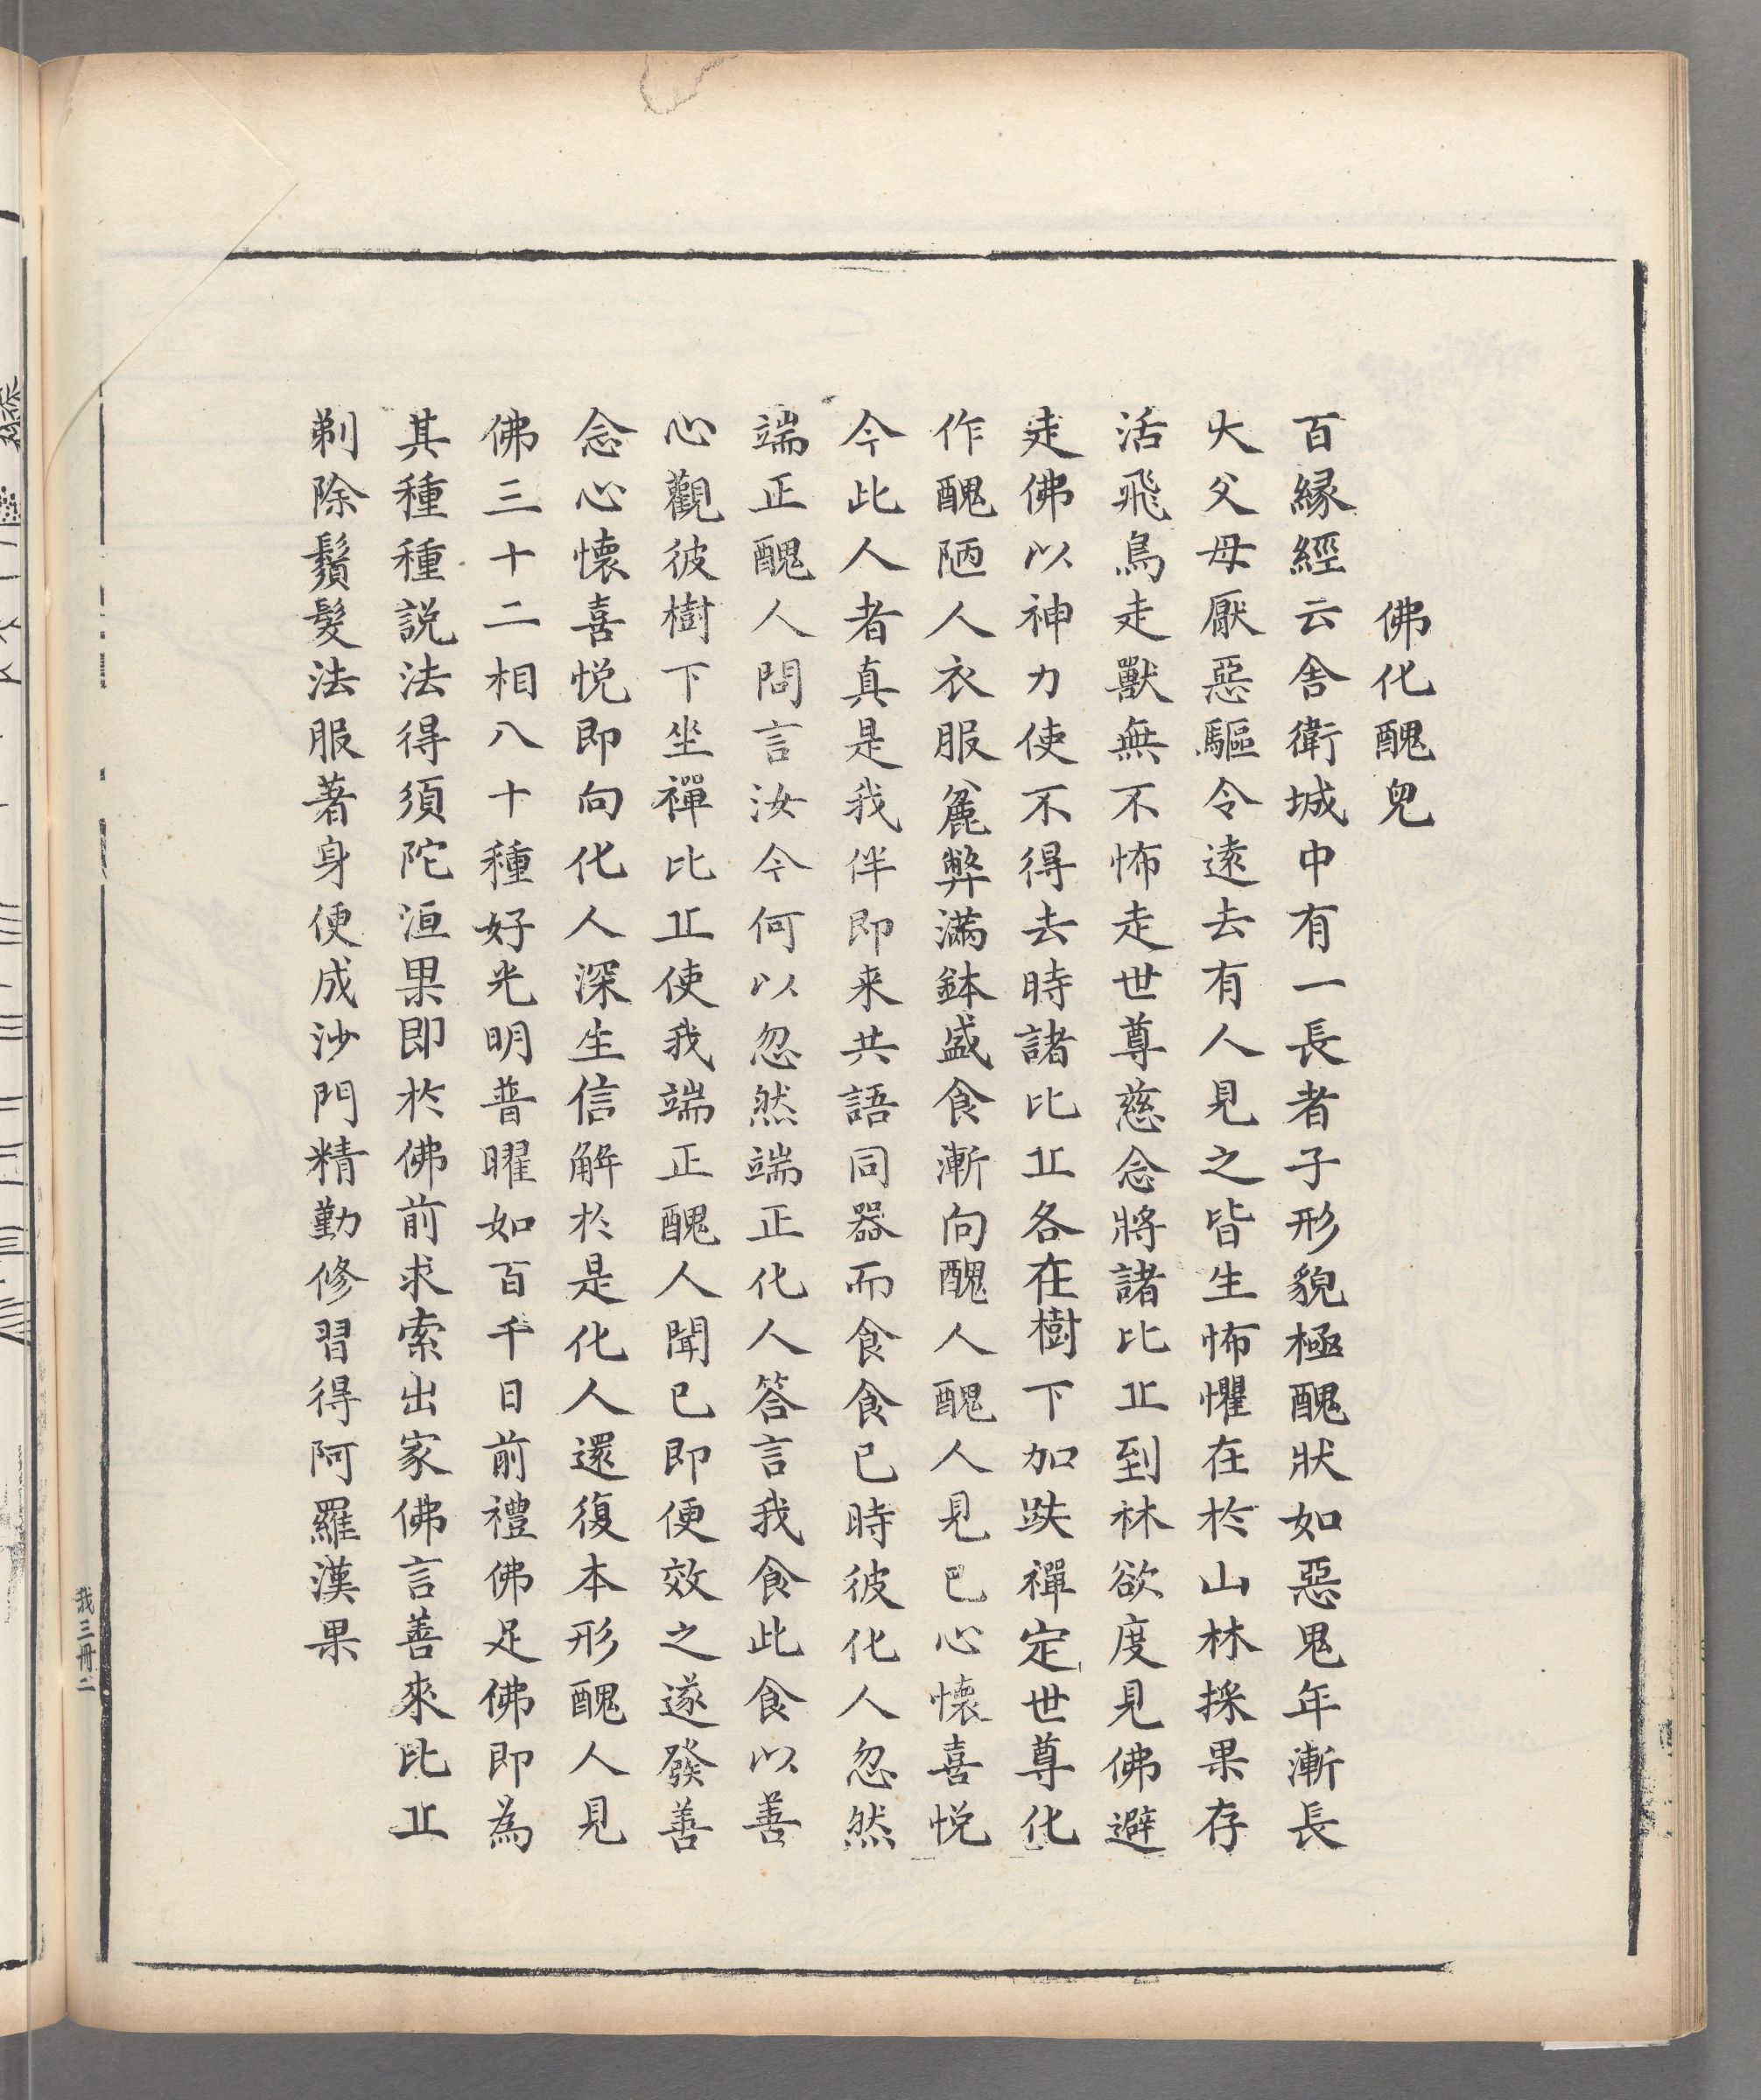 佛化醜兒
百縁經云舍衛城中有一長者子形貌極醜狀如惡鬼年漸長
大父母厭惡驅令逺去有人見之皆生怖懼在於山林採果存
活飛鳥走獸無不怖走世尊慈念將諸比丘到林欲度見佛避
走佛以神力使不得去時諸比丘各在樹下加趺禪定世尊化
作醜陋人衣服麄弊滿鉢盛食漸向醜人醜人見已心懷喜悦
今此人者真是我伴即来共語同器而食食已時彼化人忽然
端正醜人問言汝今何以忽然端正化人答言我食此食以善
心觀彼樹下坐禪比丘使我端正醜人聞已即便效之遂發善
念心懷喜悦即向化人深生信解於是化人還復本形醜人見
佛三十二相八十種好光明普曜如百千日前禮佛足佛即為
其種種説法得須陀洹果即於佛前求索出家佛言善來比丘
剃除鬚髮法服著身便成沙門精勤修習得阿羅漢果
我三冊二